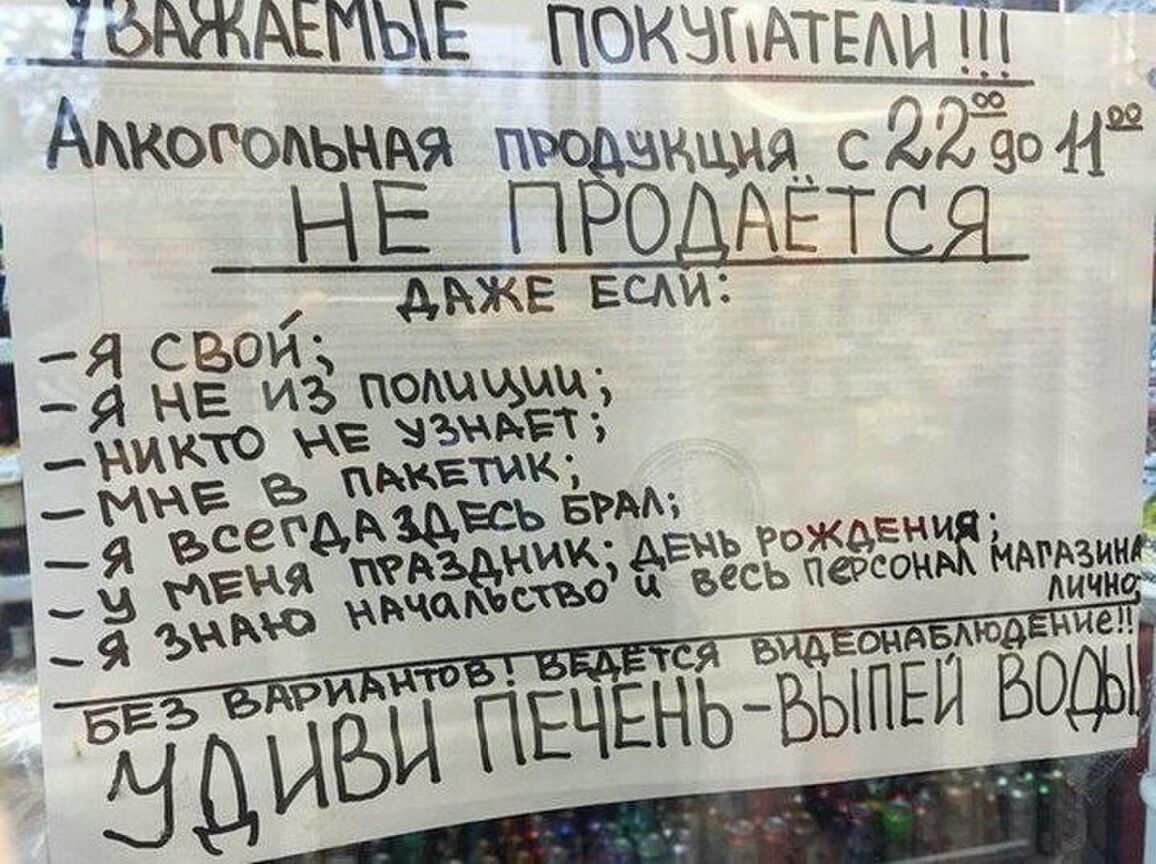 УВАЖАЕМЫЕ ПОКУПАТЕЛИ!!!
Алкогольная продукция с 22⁰⁰ до 11⁰⁰
НЕ ПРОДАЁТСЯ
ДАЖЕ ЕСЛИ:
- Я СВОЙ;
- Я НЕ ИЗ ПОЛИЦИИ;
- НИКТО НЕ УЗНАЕТ;
- МНЕ В ПАКЕТИК;
- Я ВСЕГДА ЗДЕСЬ БРАЛ;
- У МЕНЯ ПРАЗДНИК; ДЕНЬ РОЖДЕНИЯ;
- Я ЗНАЮ НАЧАЛЬСТВО И ВЕСЬ ПЕРСОНАЛ МАГАЗИНА
ЛИЧНО;
БЕЗ ВАРИАНТОВ! ВЕДЁТСЯ ВИДЕОНАБЛЮДЕНИЕ!!
УДИВИ ПЕЧЕНЬ - ВЫПЕЙ ВОДЫ